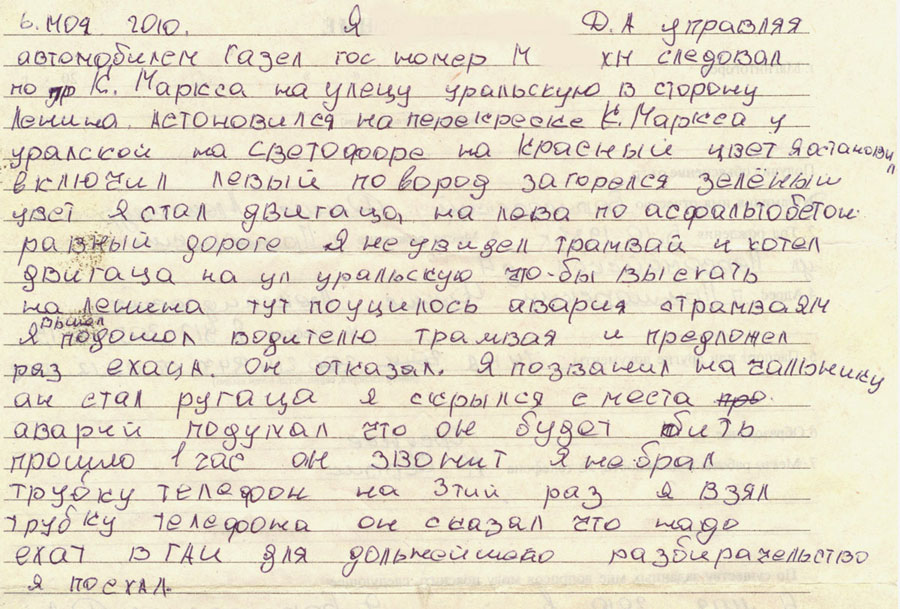 6. МОЯ 2010. Я Д.А управляя
автомобилем Газел гос номер М ХН следовал
по пр К. Маркса на улещу уральскую в сторону
Ленина. Астоновился на перекреске К. Маркса у
уралской на светофоре на красный цвет я астановил
включил левый повород загорелся зелёный
цвет я стал двигаца, на лева по асфальтобетон
равный дороге Я не увидел трамвай и хотел
двигаца на ул уральскую что-бы выехать
на ленина тут поуцилось авария странваям
Я вышол подошол водителю трамвая и предложел
раз ехаца он отказал. Я позванил на чальнику
ан стал ругаца я скрылся с места
аварий подумал что он будет бить
прошло 1 час он звонит я не брал
трубку телефон на 3тий раз я взял
трубку телефона он сказал что надо
ехат в ГАИ для дольнейшево разбирательство
я поехал.